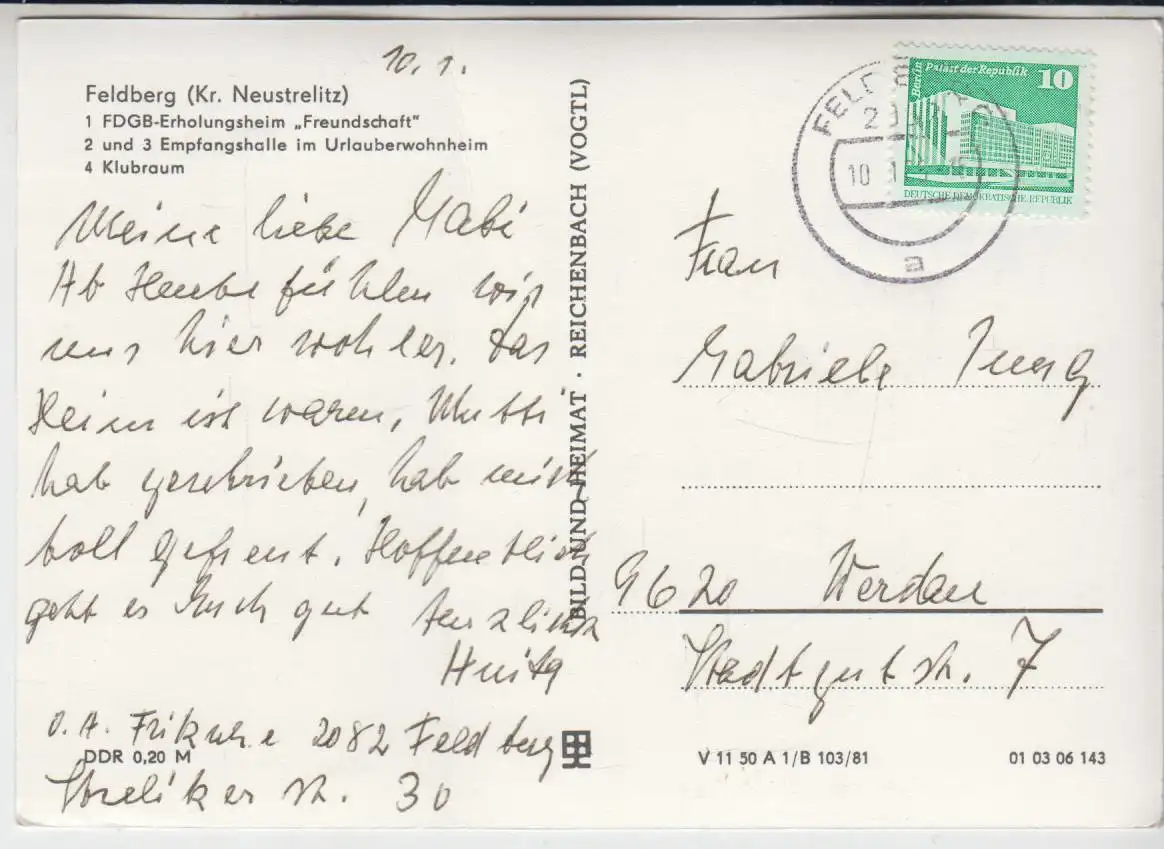 10. 1.
Feldberg (Kr. Neustrelitz)
1 FDGB-Erholungsheim „Freundschaft"
2 und 3 Empfangshalle im Urlauberwohnheim
4 Klubraum
Meine liebe Gabi
Ab Heute fühlen wir
uns hier wohler. Das
Heim ist warm, Mutti
hab geschrieben, hab mich
toll gefreut. Hoffentlich
geht es Euch gut Herzlichst
Anita
DDR 0,20 M
2082 Feldberg
Strelitzer str. 30
BILD UND HEIMAT · REICHENBACH (VOGTL)
Berlin Palast der Republik 10
DEUTSCHE DEMOKRATISCHE REPUBLIK
10
a
Frau
Gabriele Jung
9620 Werdau
Stadtgutstr. 7
V 11 50 A 1/B 103/81
01 03 06 143